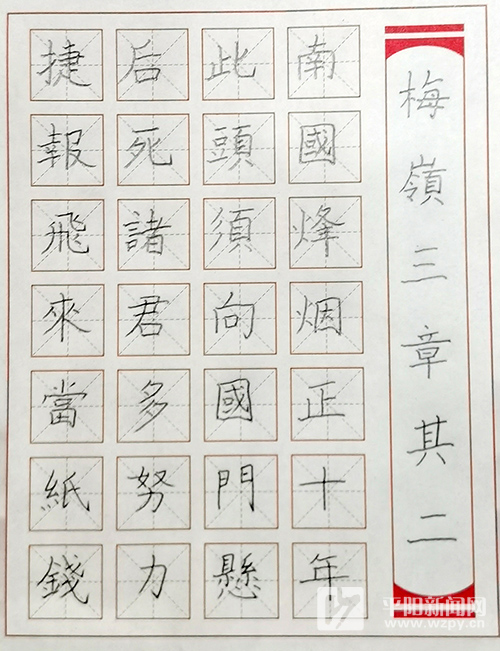 梅嶺三章其二
南國烽烟正十年
此頭須向國門懸
后死諸君多努力
捷報飛來當紙錢
平阳新闻网
www.wzpy.cn